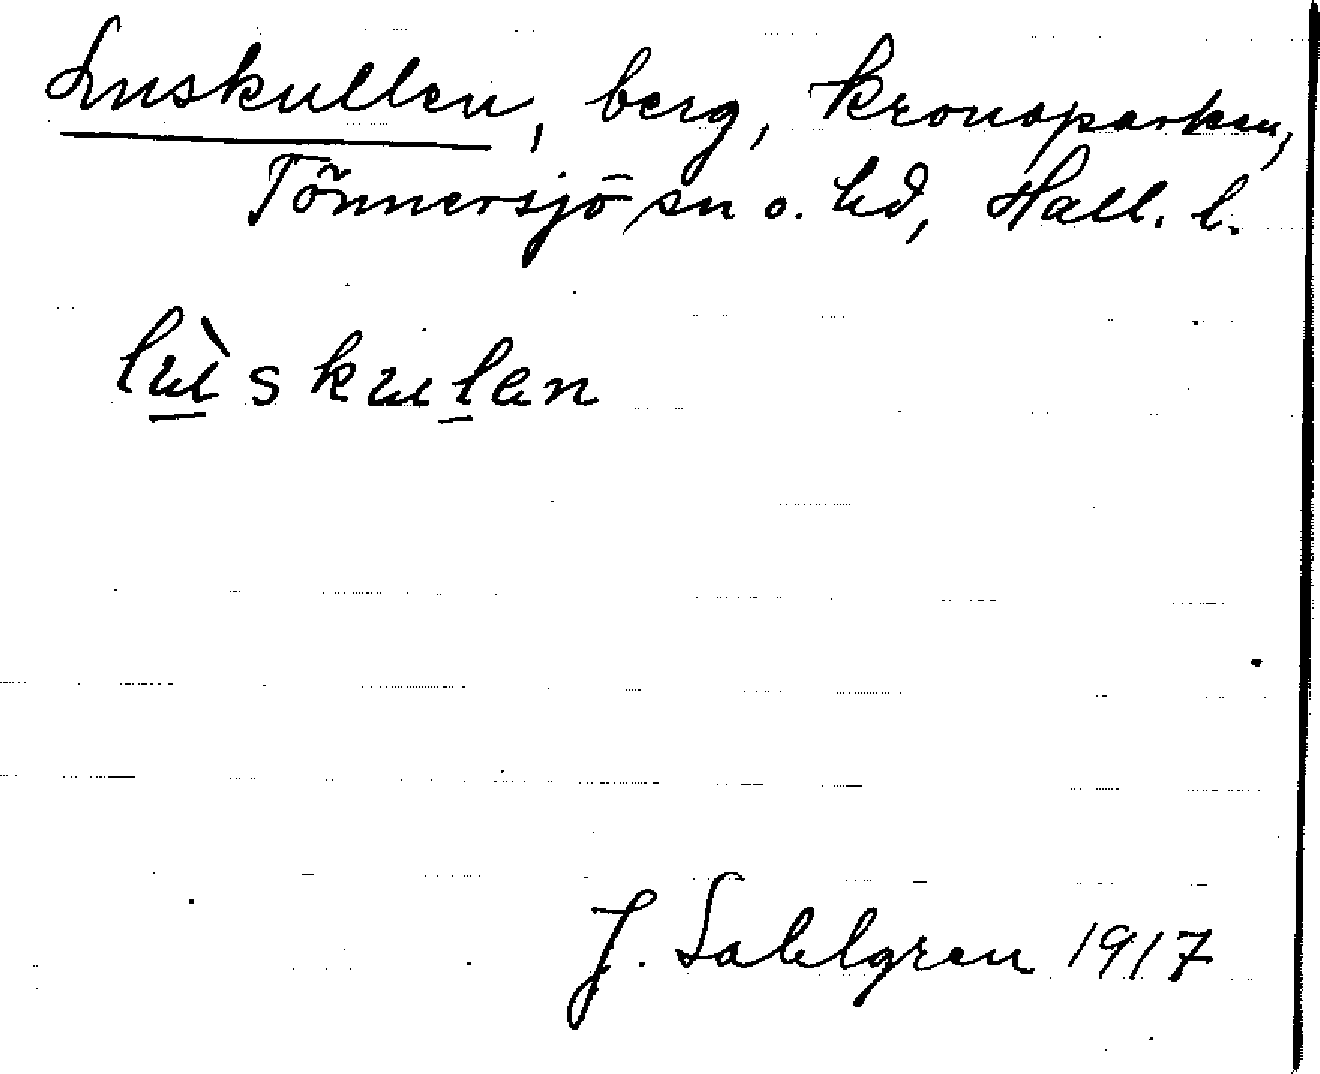 Luskullen, berg, Kronoparken,
Tönnersjö sn o. hd, Hall. l.
lùskulen
J. Sahlgren 1917